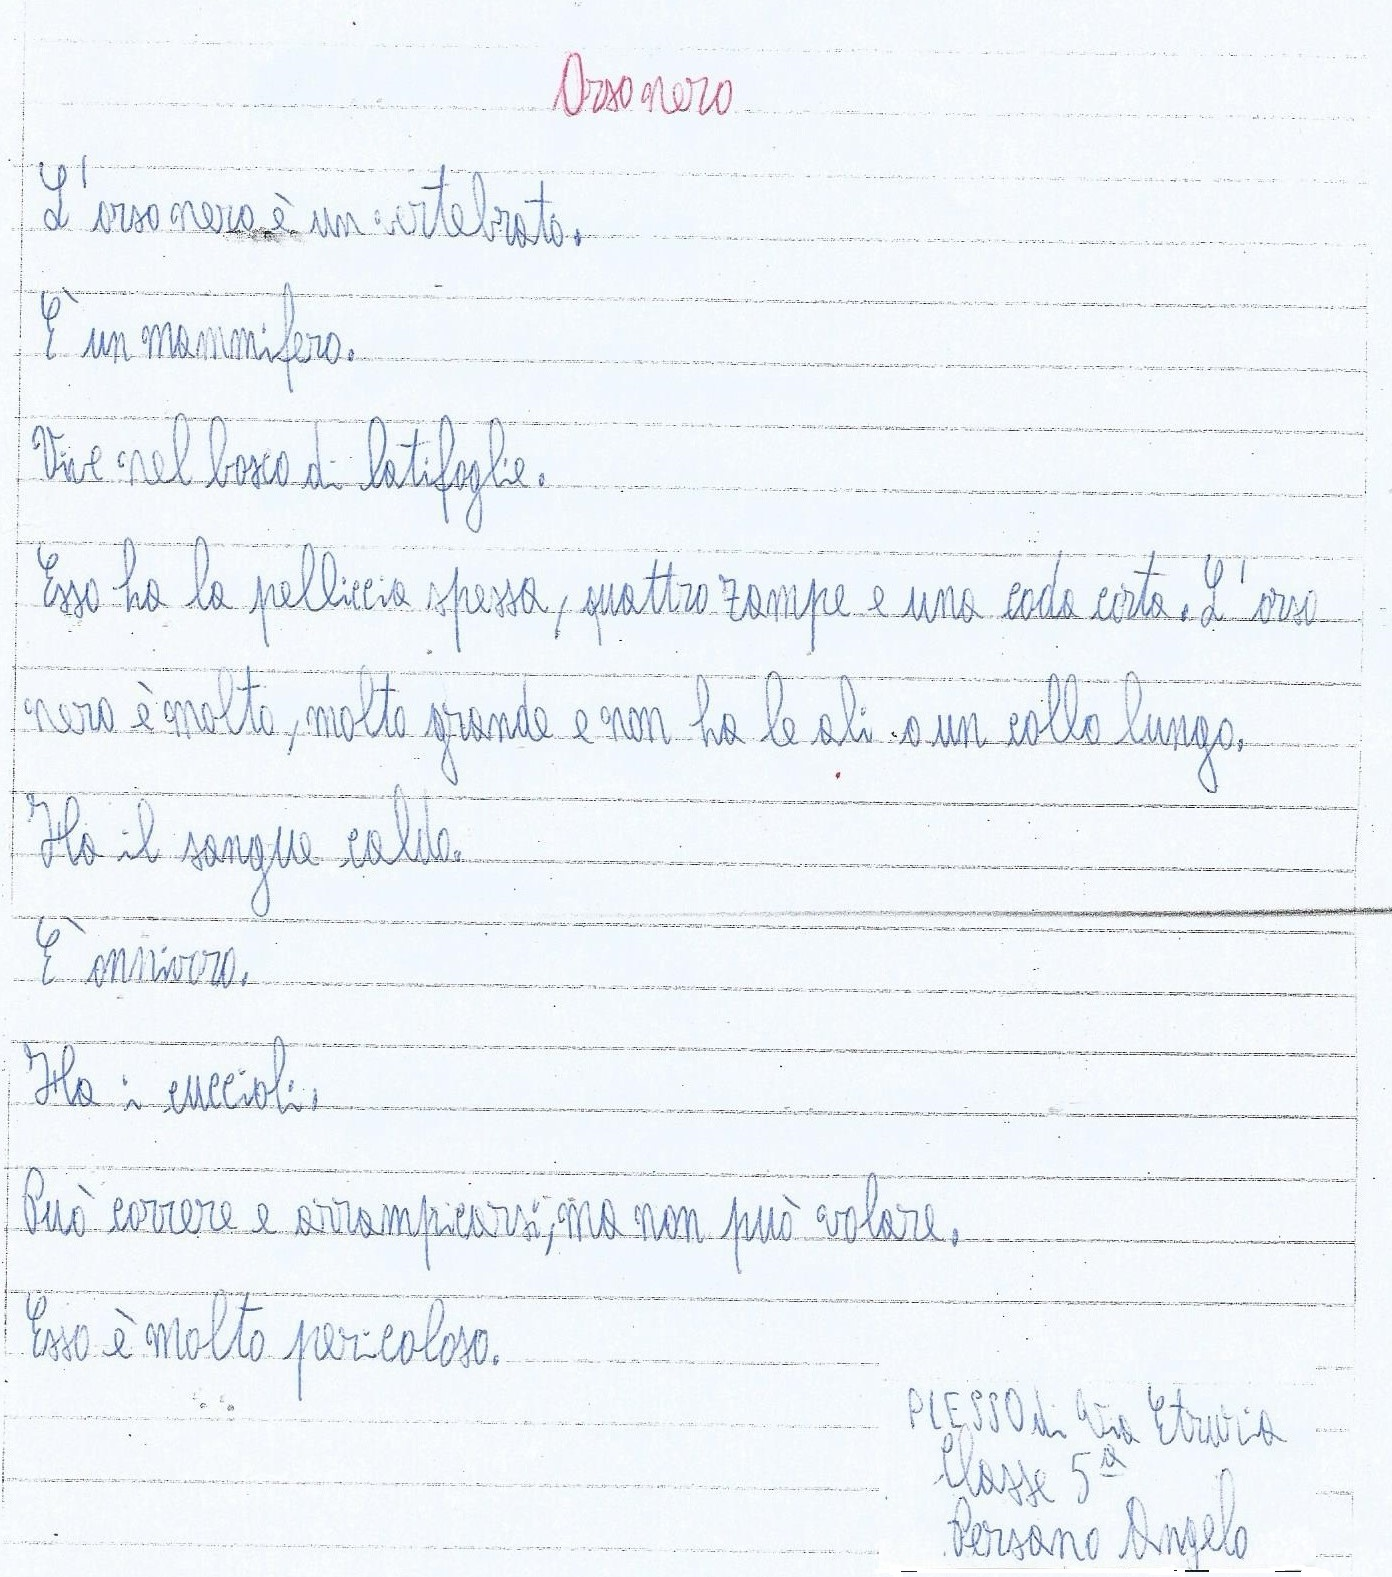 Orso nero
L'orso nero è un vertebrato.
È un mammifero.
Vive nel bosco di latifoglie.
Esso ha la pelliccia spessa, quattro zampe e una coda corta. L'orso
nero è molto, molto grande e non ha le ali o un collo lungo.
Ha il sangue caldo.
È onnivoro.
Ha i cuccioli.
Può correre e arrampicarsi, ma non può volare.
Esso è molto pericoloso.
PLESSO di Via Etruria
Classe 5ª
Persano Angelo